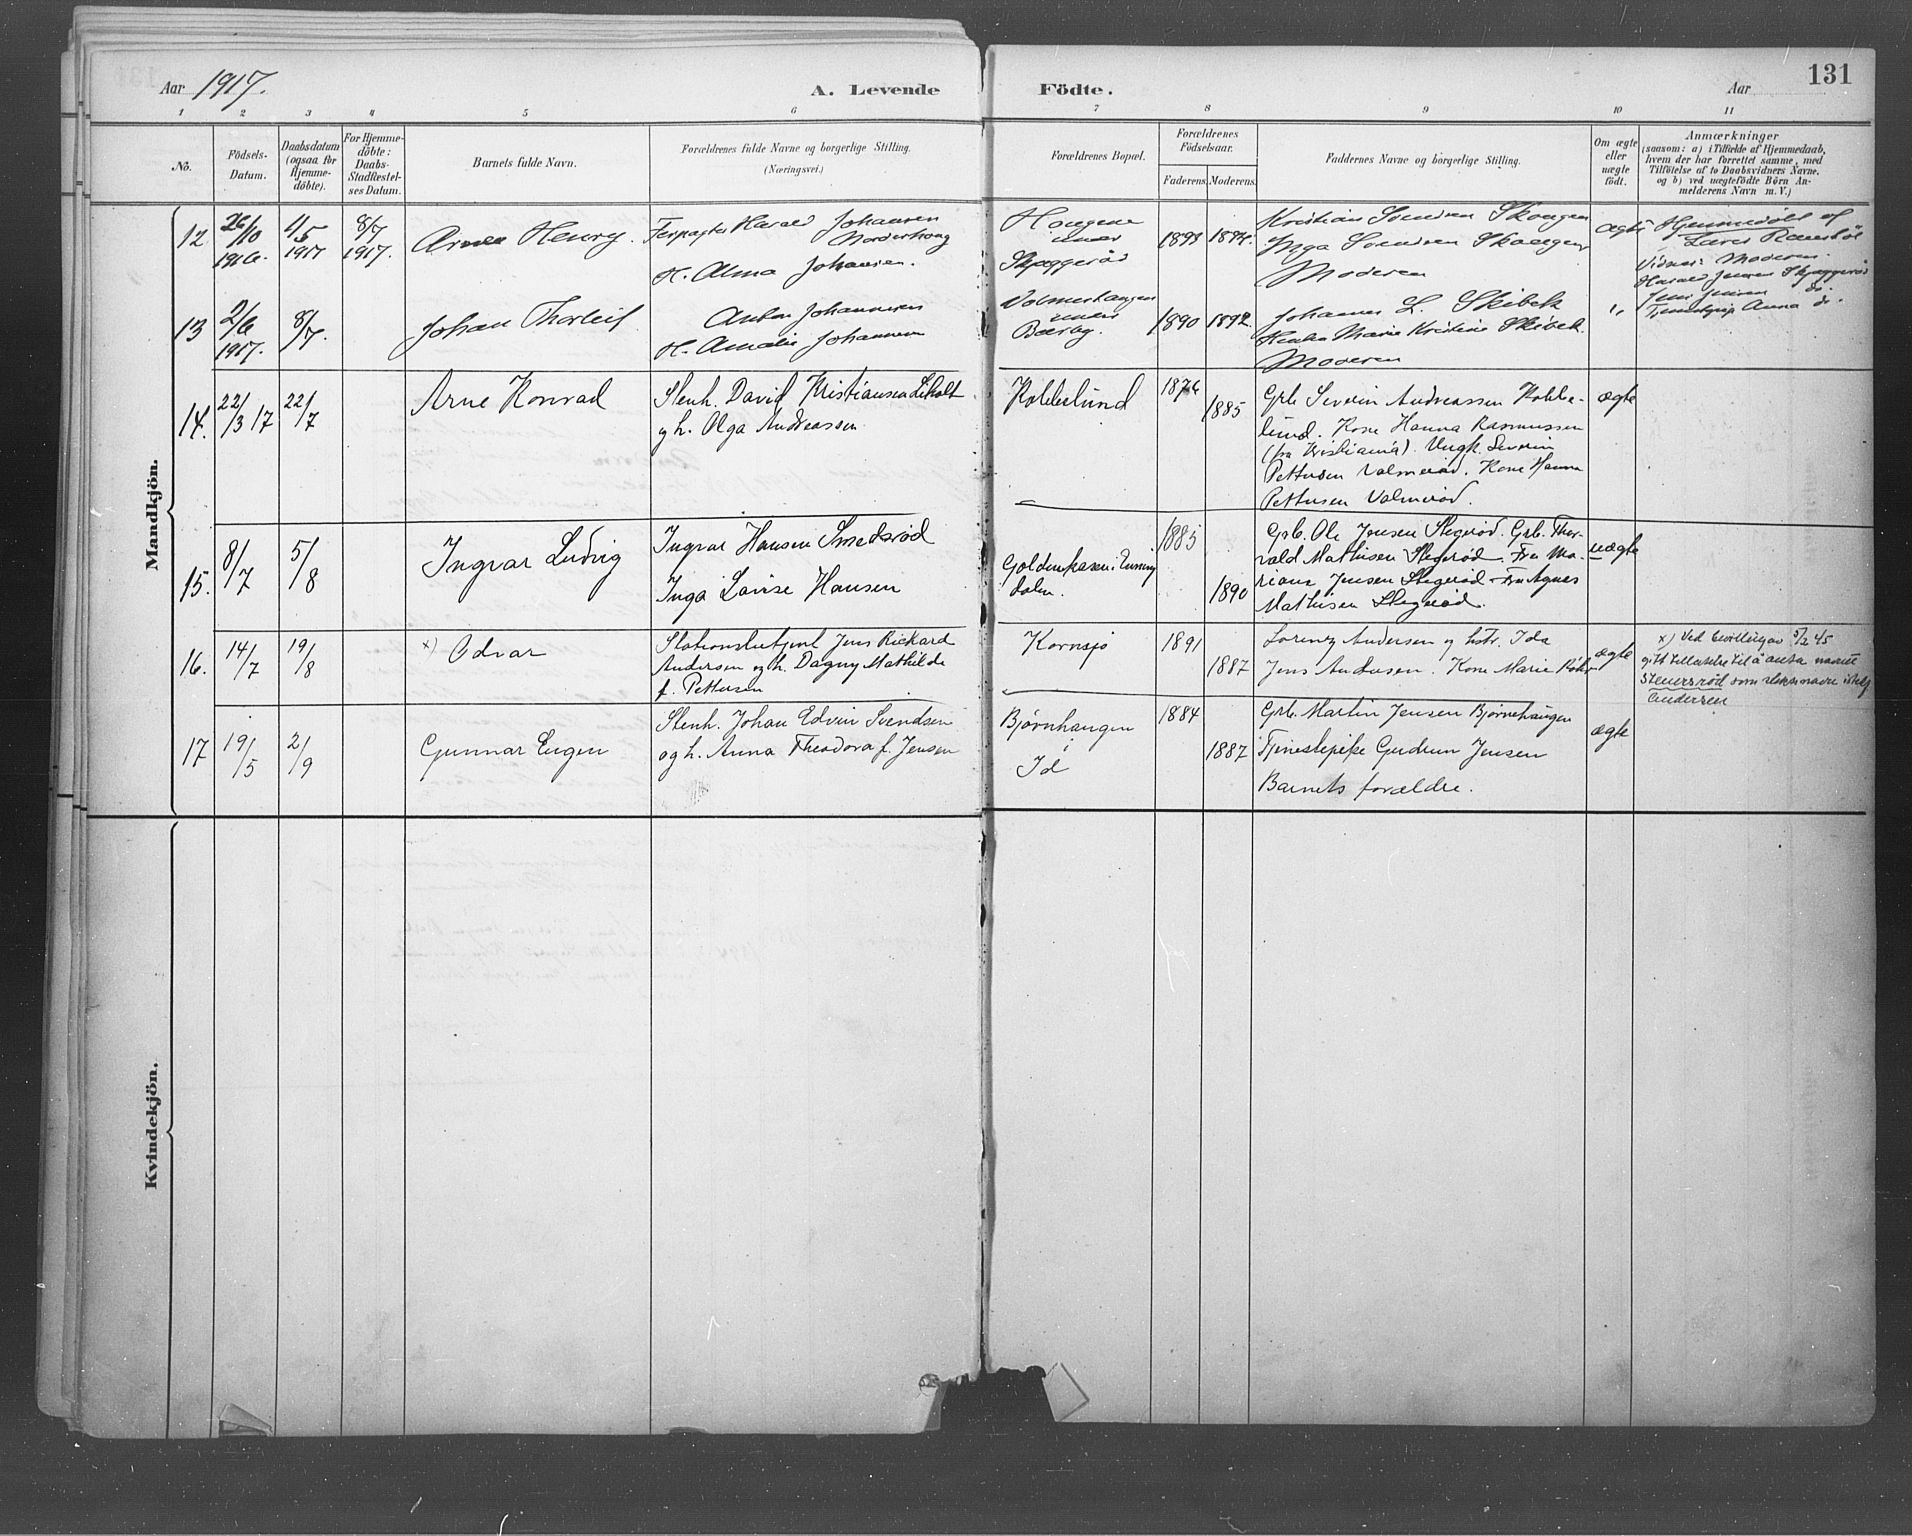 Aar 1917.
A. Levende
Födte.
Aar
131
1 2 3 4 5 6 7 8 9 10 11
No.
Födsels-
Datum.
Daabsdatum
(ogsaa for
Hjemme-
döbte).
For Hjemme-
döbte:
Daabs-
Stadfestel-
ses Datum.
Barnets fulde Navn.
Forældrenes fulde Navne og borgerlige Stilling.
(Næringsvei.)
Forældrenes Bopæl.
Forældrenes
Födselsaar.
Faderens. Moderens.
Faddernes Navne og borgerlige Stilling.
Om ægte
eller
uægte
födt.
Anmærkninger
(saasom: a) i Tilfælde af Hjemmedaab,
hvem der har forrettet samme, med
Tilföielse af to Daabsvidners Navne,
og b) ved uægtefödte Börn An-
melderens Navn m. V.)
Mandkjön.
12
26/10
1916.
4/5
1917
8/7
1917.
Arne Henry.
Forpagter Harald Johansen
Norderhaug
H. Alma Johansen.
Haugene
under
Skjeggeröd
1893 1894.
Kristian Svendsen Skaugen
Inga Svendsen Skaugen
Moderen
ægte
Hjemmedöbt af
Lærer
Vidner: Moderen.
Harald Jensen Skjeggeröd
Jens Jensen do
Anna do.
13
2/6
1917.
8/7.
Johan Thorleif.
Anton Johannesen
H. Amalie Johannesen
under
Bærby.
1890 1892.
Johannes L. Skibek
Marie Kristine Skibek.
Moderen
"
14.
22/3 17
22/7
Arne Konrad
Stenh. David Kristiansen Liholt
og h. Olga Andreassen
Kobbelund
1874
1885
Grb. Severin Andreassen Kobbe-
lund. Kone Hanna Rasmussen
(fra Kristiania). Ungk. Severin
Pettersen Valmeröd. Kone Hanna
Pettersen Valmeröd.
ægte
15.
8/7
5/8
Ingvar Ludvig
Ingvar Hansen Smedsröd
Inga Lovise Hansen
Goldenkasen i Enning-
dalen.
1885
1890
Grb. Ole Jensen Stegeröd. Grb. Thor-
vald Mathisen Stegeröd. Fru Ma-
riane Jensen Stegeröd. Fru Agnes
Mathisen Stegeröd.
uægte
16.
14/7
19/8
x) Odvar
Stationsbetjent Jens Rickard
Andersen og h. Dagny Mathilde
f. Pettersen
Kornsjø
1891
1887
Lorentz Andersen og hstr. Ida
Jens Andersen. Kone Marie
ægte
x) Ved bevilling av 5/2 45
gitt tillatelse til å anta navnet
Steinersröd som slektsnavn istedf
Andersen
17
19/5
2/9
Gunnar Eugen
Stenh. Johan Edvin Svendsen
og h. Anna Theodora f. Jensen
Bjørnhaugen
i
Id
1884
1887
Grb. Martin Jensen Bjørnehaugen
Tjenestepike Gudrun Jensen
Barnets forældre.
ægte
Kvindekjön.